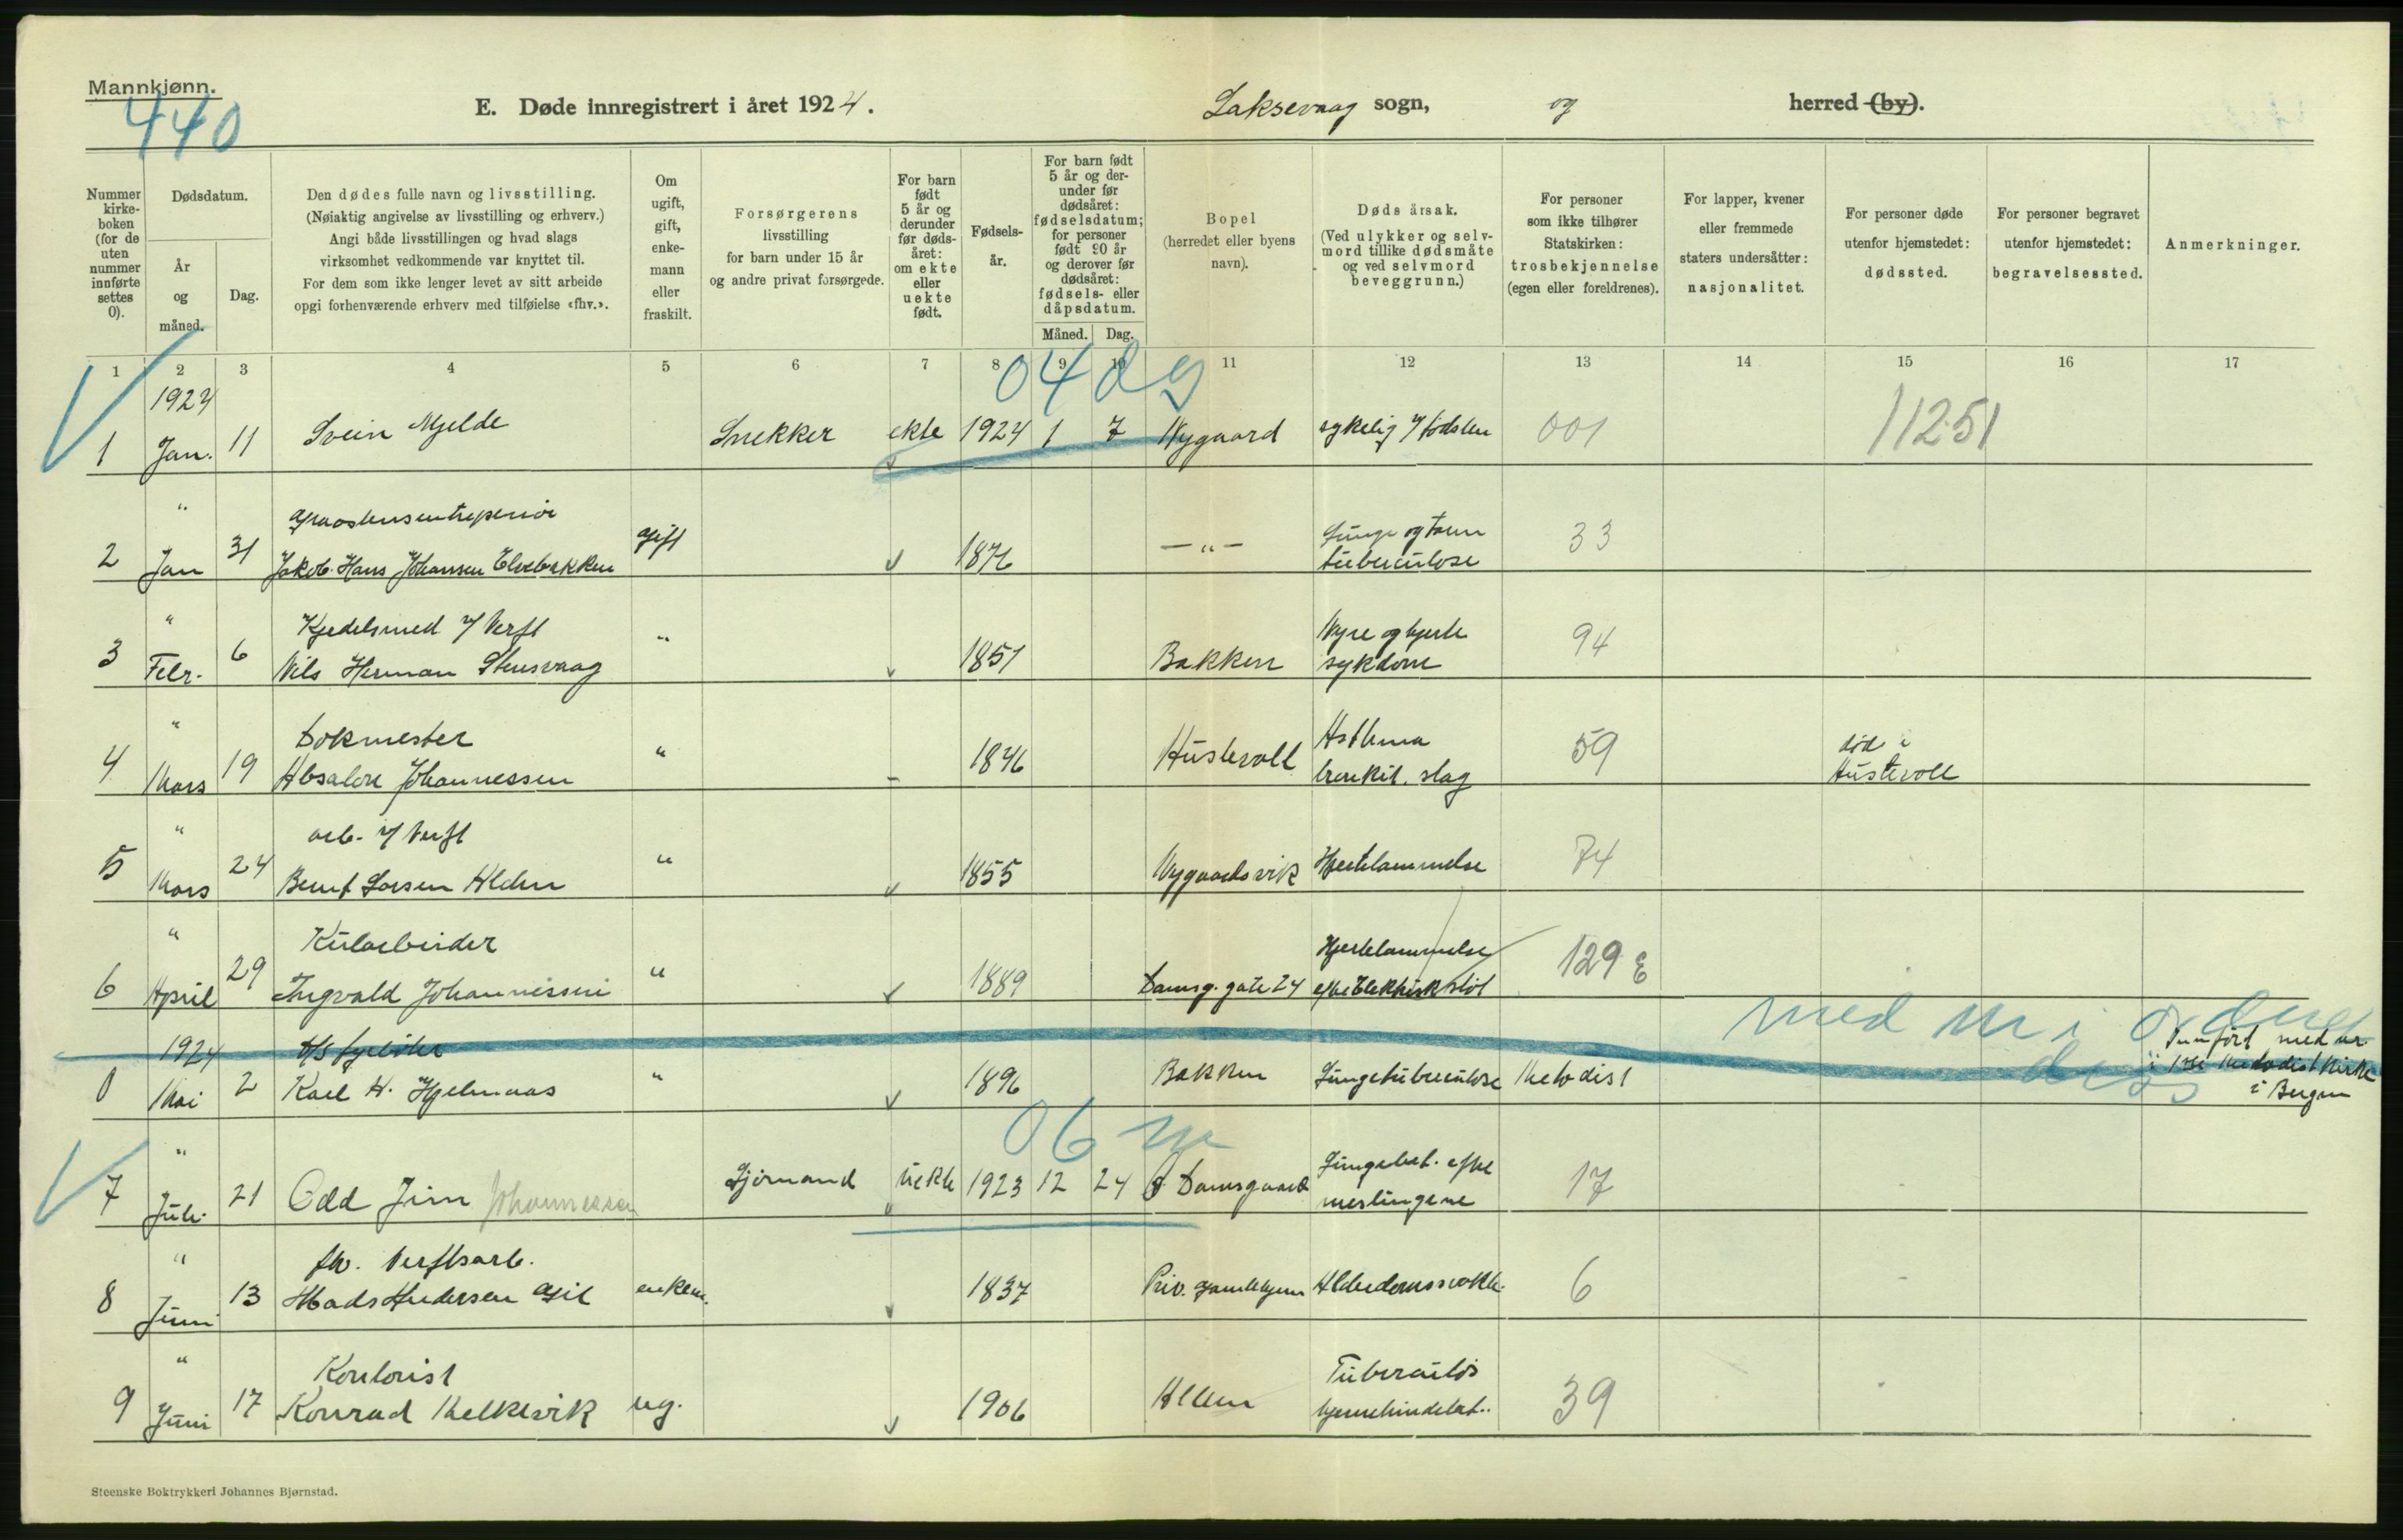 Mannkjønn.
440
E. Døde innregistrert i året 1924. Laksevaag sogn, og herred (by).
Nummer kirke-boken (for de uten nummer innførte settes 0).
Dødsdatum.
År og måned.
Dag.
Den dødes fulle navn og livsstilling.
(Nøiaktig angivelse av livsstilling og erhverv.)
Angi både livsstillingen og hvad slags
virksomhet vedkommende var knyttet til.
For dem som ikke lenger levet av sitt arbeide
opgi forhenværende erhverv med tilføielse «fhv.».
Om ugift, gift, enke-mann eller fraskilt.
Forsørgerens
livsstilling
for barn under 15 år
og andre privat forsørgede.
For barn født 5 år og derunder før døds-året: om ekte eller uekte født.
Fødsels-år.
For barn født 5 år og der-under før dødsåret: fødselsdatum; for personer født 90 år og derover før dødsåret: fødsels- eller dåpsdatum.
Måned. Dag.
Bopel
(herredet eller byens
navn).
Dødsårsak.
(Ved ulykker og selv-
mord tillike dødsmåte
og ved selvmord
beveggrunn.)
For personer
som ikke tilhører
Statskirken:
trosbekjennelse
(egen eller foreldrenes).
For lapper, kvener
eller fremmede
staters undersåtter:
nasjonalitet.
For personer døde
utenfor hjemstedet:
dødssted.
For personer begravet
utenfor hjemstedet:
begravelsessted.
Anmerkninger.
1 2 3 4 5 6 7 8 9 10 11 12 13 14 15 16 17
04 dg
1924
1 Jan. 11 Svein Mjelde Snekker ekte 1924 1 7 Nygaard sykelig v/ fødslen 001 11251
"
2 Jan 31 Jakob Hans Johansen Elvebakken gift 1876 — " — Lunge og tarm tuberculose 33
" Kjedelsmed v/ Verft
3 Febr. 6 Nils Herman Stensvaag " 1851 Bakken Nyre og hjerte sykdom 94
" Dokmester
4 Mars 19 Absalon Johannessen " 1846 Hustevoll Asthma bronkit. slag 59 død i Hustevoll
" arb. v/ Verft
5 Mars 24 Bernt Larsen Alden " 1855 Nygaardsvik Hjertelammelse 74
" Kularbeider
6 April 29 Ingvald Johannissen " 1889 Damsg. gate 24 Hjertelammelse efter Elektrisk støt 129 E
1924
0 Mai 2 Karl H. Hjelmaas " 1896 Bakken Lungetuberculose Metodist Innført med nr. i Metodistkirke i Bergen
med m i
06 m
"
7 Juli 21 Odd Jim Johannessen Sjømand uekte 1923 12 24 Damsgaard Lungebet. efter meslingene 17
" fhv. Verftsarb.
8 Juni 13 Mads Andersen Gil enkem. 1837 Priv. gamlehjem Alderdomssvakh. 6
" Kontorist
9 Juni 17 Konrad Melkevik ug. 1906 Alleen Tuberculøs hjernehindebet. 39
Steenske Boktrykkeri Johannes Bjørnstad.